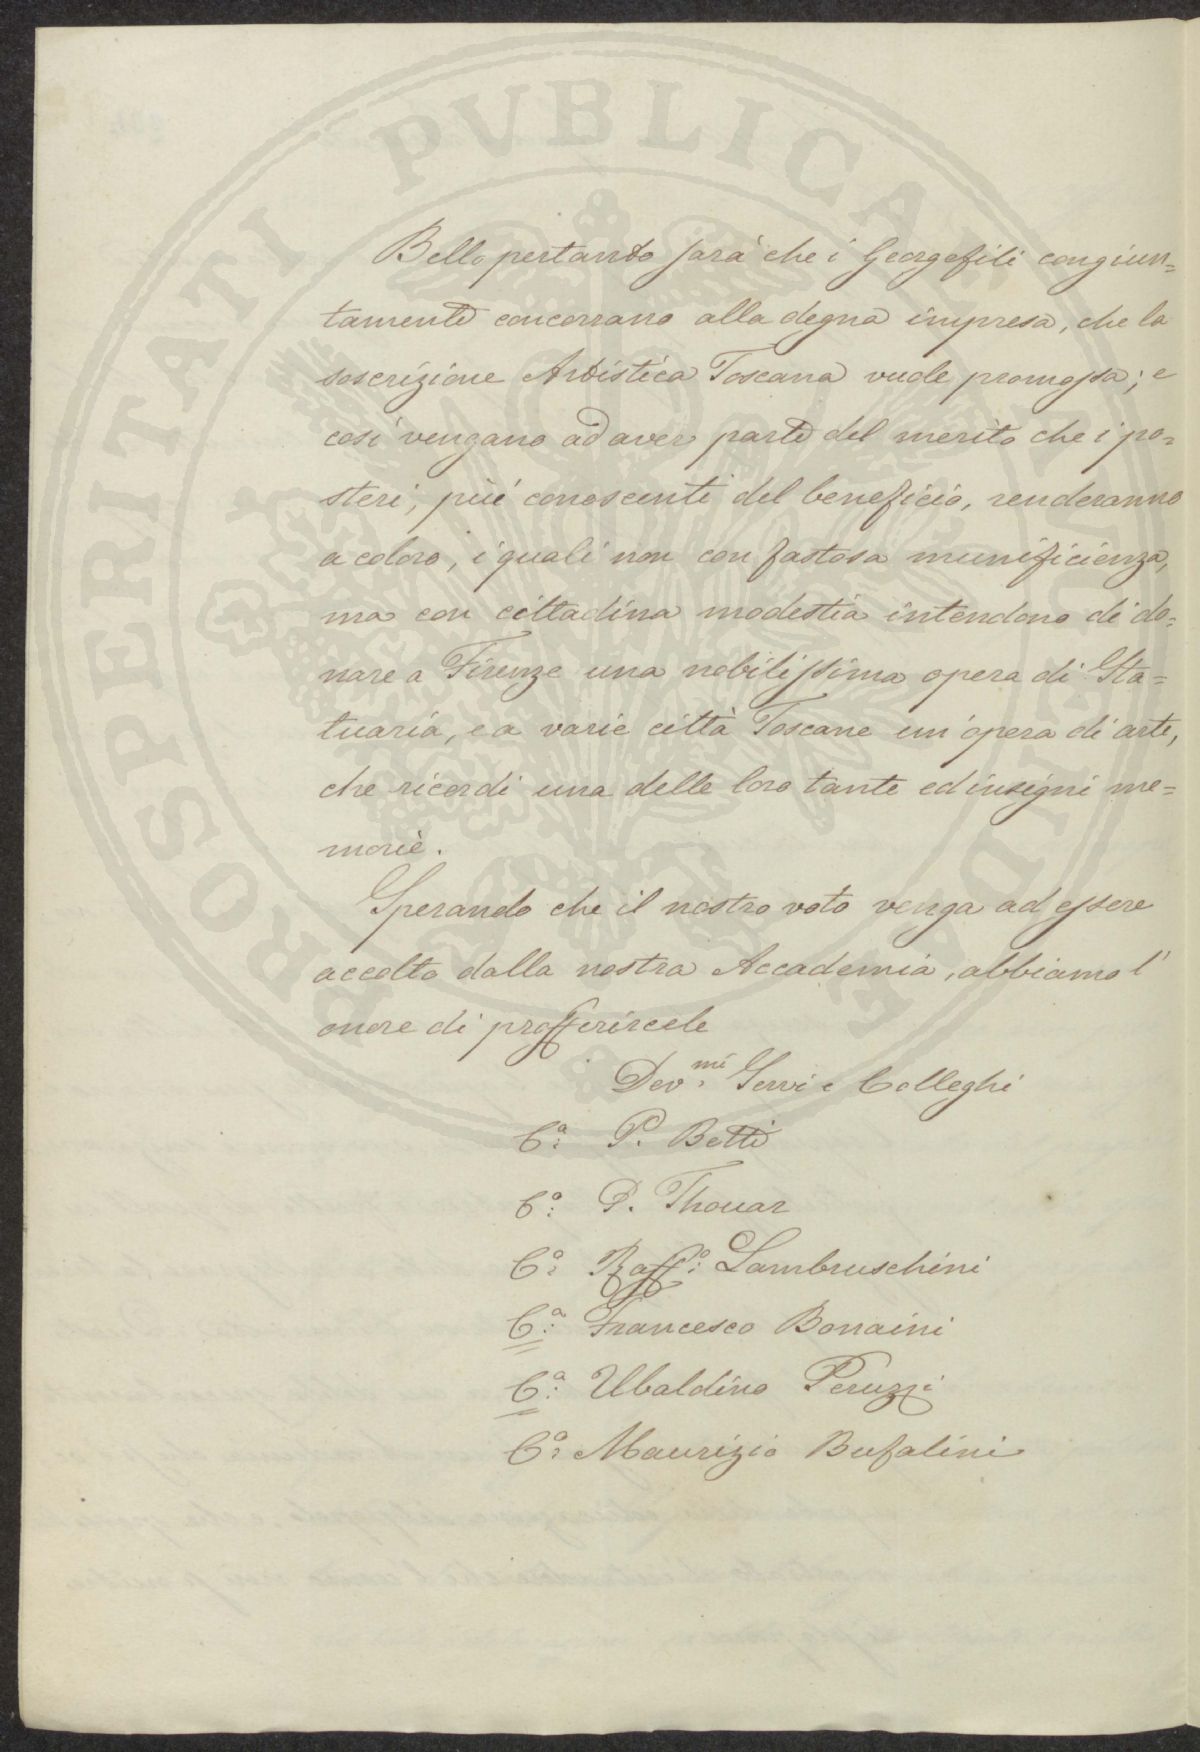 PROSPERITATI PUBLICAE AUGENDAE
Bello pertanto sarà che i Georgofili congiun=
tamente concorrano alla degna impresa, che la
soscrizione Artistica Toscana vuole promossa; e
così vengano ad aver parte del merito che i po=
steri, più conoscenti del beneficio, renderanno
a coloro, i quali non con fastosa munificienza,
ma con cittadina modestia intendono di do=
nare a Firenze una nobilissima opera di Sta=
tuaria, e a varie città Toscane un'opera di arte,
che ricordi una delle loro tante ed insigni me=
morie.
Sperando che il nostro voto venga ad essere
accolto dalla nostra Accademia, abbiamo l'
onore di profferircele
Dev.mi Servi e Colleghi
Ca: P. Betti
Co: P. Thouar
Co: Raffo: Lambruschini
Ca: Francesco Bonaini
Ca: Ubaldino Peruzzi
Co: Maurizio Bufalini